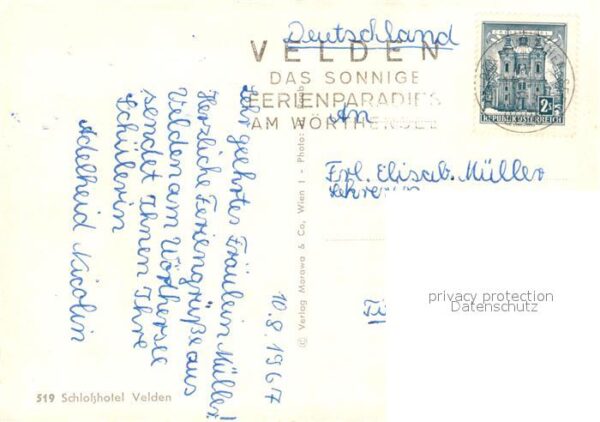 Deutschland
VELDEN
DAS SONNIGE
FERIENPARADIES
AM WÖRTHERSEE
2S
REPUBLIK ÖSTERREICH
An
Frl. Elisab. Müller
Lehrerin
10.8.1967
Sehr geehrtes Fräulein Müller!
Herzliche Feriengrüße aus
Velden am Wörthersee
sendet Ihnen Ihre
Schülerin
Adelheid Nicolin
© Verlag Morawa & Co, Wien 1 - Photo:
519 Schloßhotel Velden
privacy protection
Datenschutz